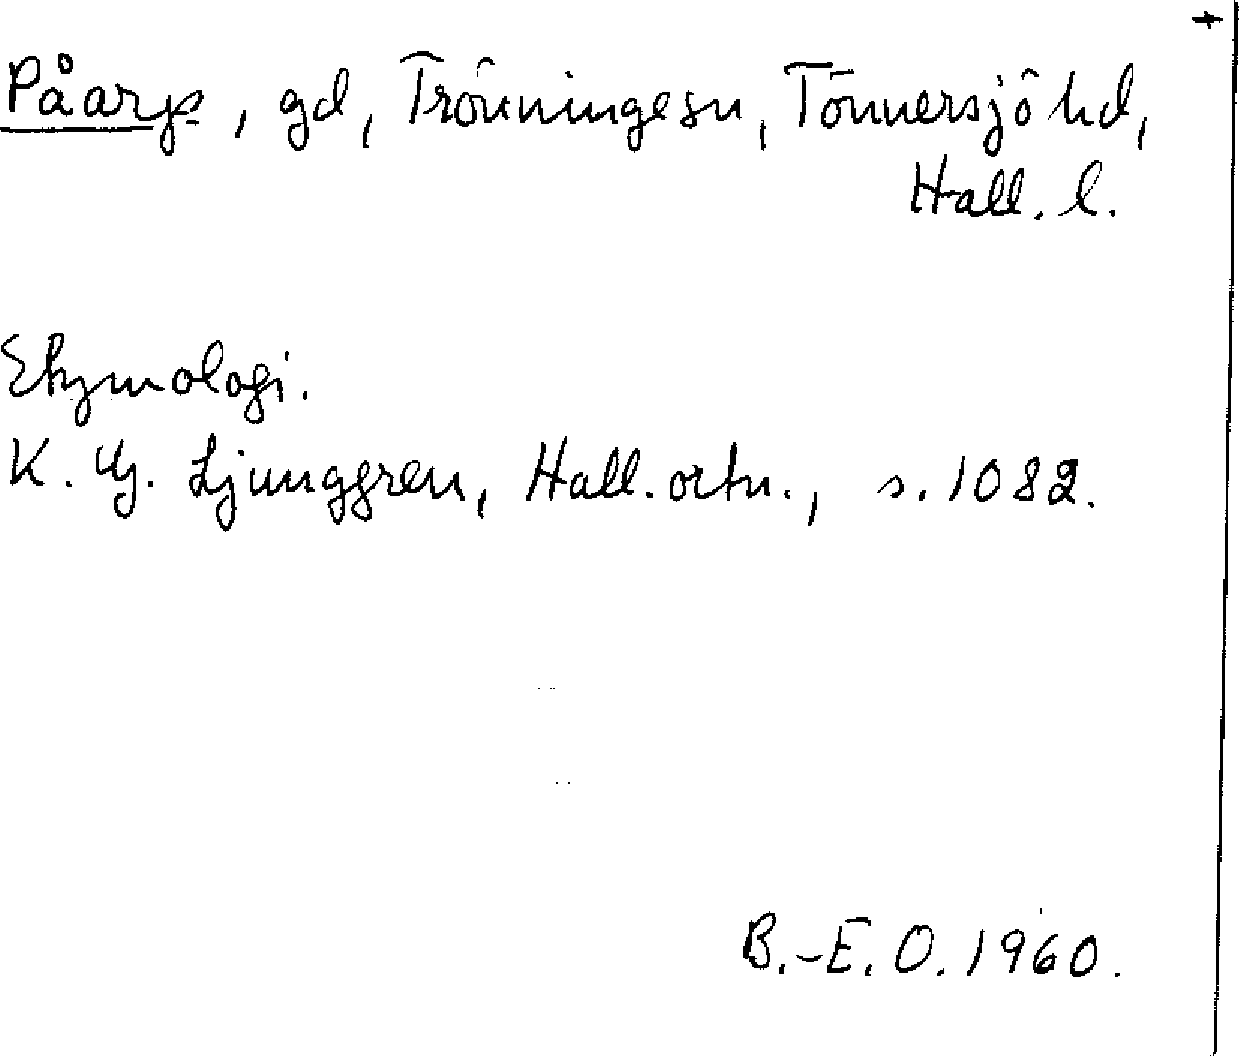 +
Påarp, gd, Trönninge sn, Tönnersjö hd,
Hall. l.
Etymologi.
K. G. Ljunggren, Hall. ortn., s. 1082.
B.-E. O. 1960.